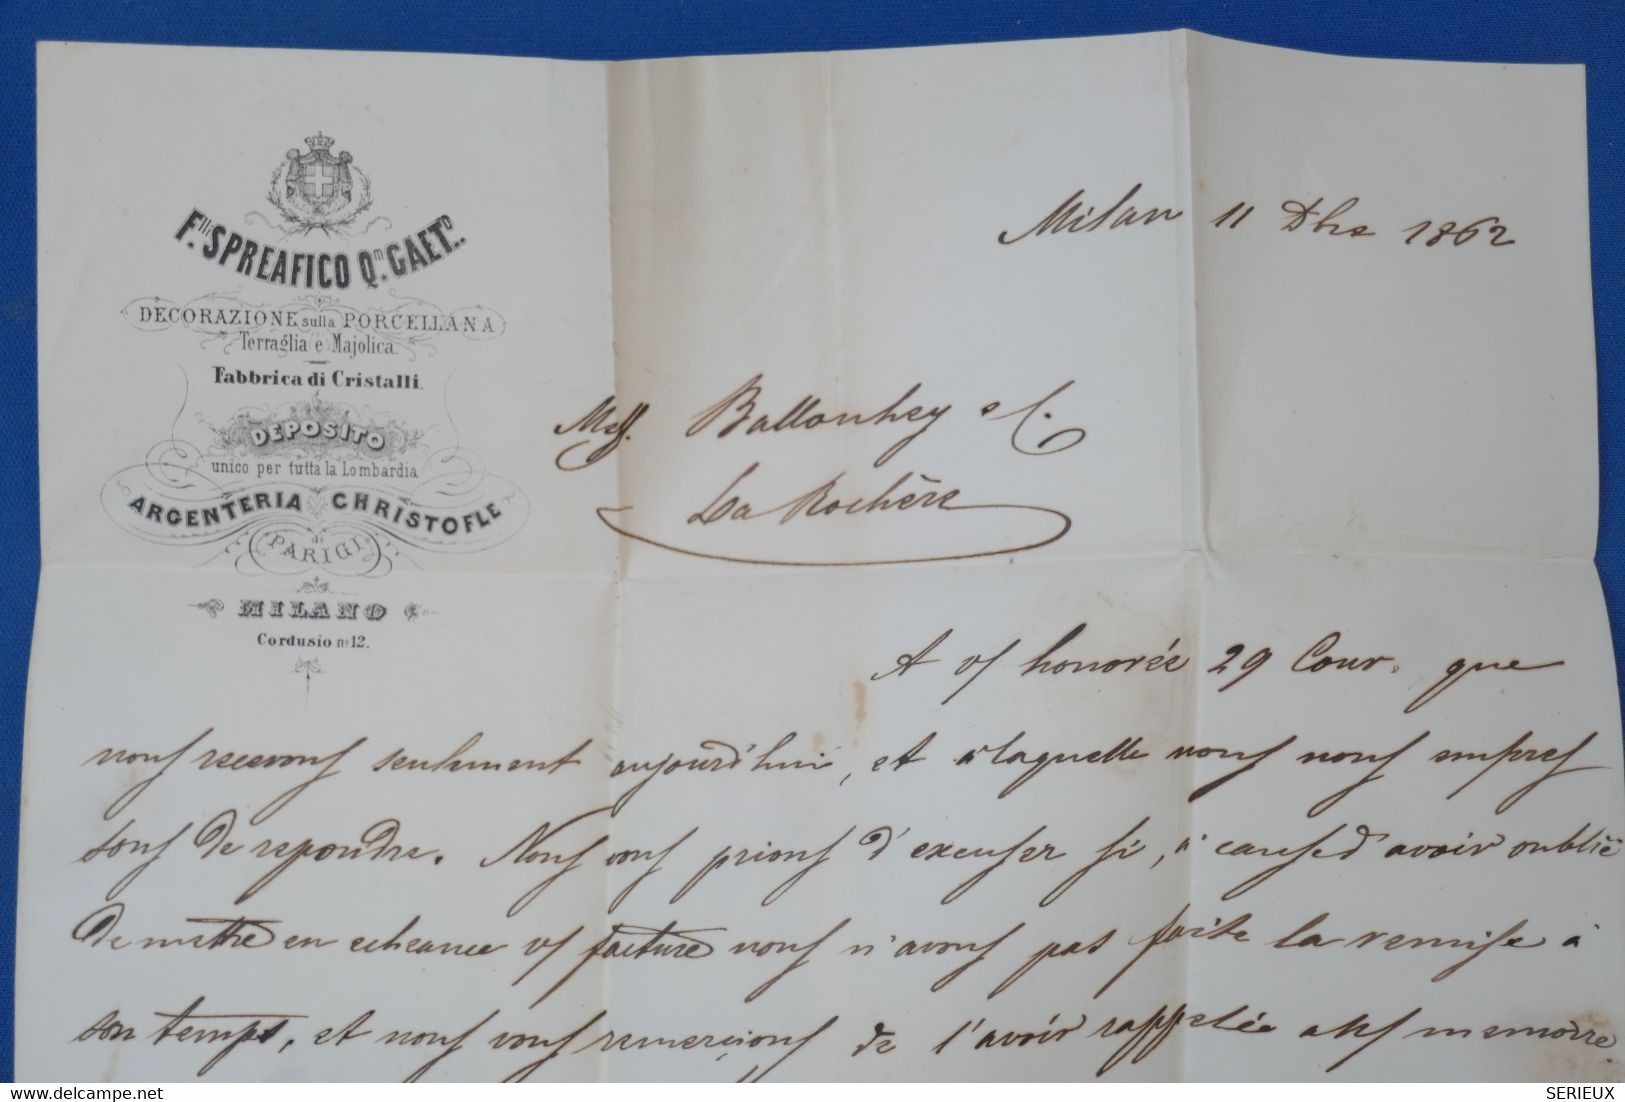 F.lli SPREAFICO Qm. GAET.o
DECORAZIONE sulla PORCELLANA
Terraglia e Majolica.
Fabbrica di Cristalli.
DEPOSITO
unico per tutta la Lombardia
ARGENTERIA CHRISTOFLE
di
PARIGI
MILANO
Cordusio no 12.
Milan 11 Dbre 1862
Mess. Ballonhey e C.
La Rochère
A v/ honorée 29 Cour. que
nous recevons seulement aujourd'hui, et à laquelle nous nous empres
sons de repondre. Nous vous prions d'excuser si, à cause d'avoir oublié
de mettre en echeance v/ facture nous n'avons pas faite la remise à
son temps, et nous vous remerçions de l'avoir rappelée a n/s memoire
delcampe.net
SERIEUX